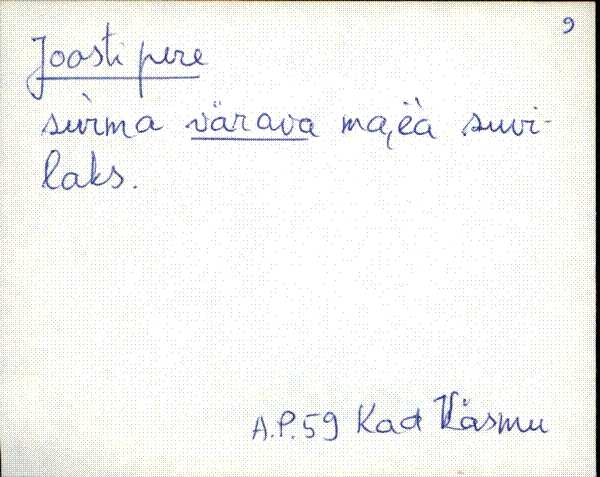 9
Joosti pere
sùrma värava ma,ëà suvi-
laks.
A.P.59 Kad Käsmu